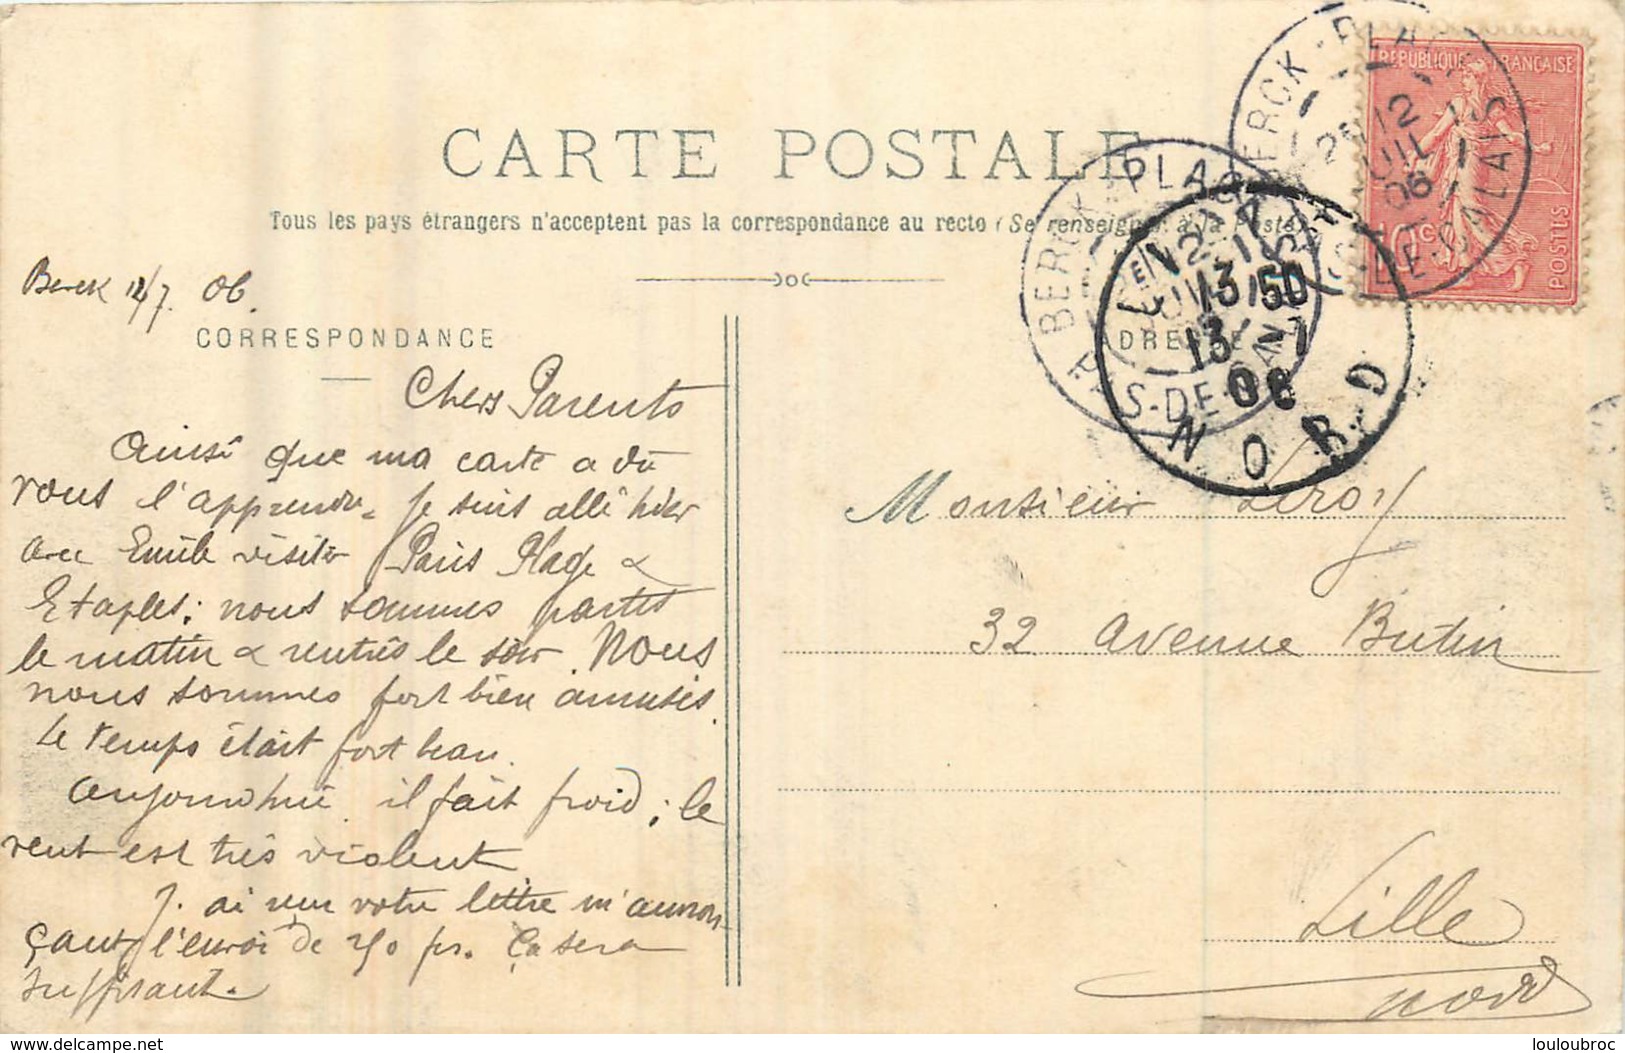 CARTE POSTALE
Tous les pays étrangers n'acceptent pas la correspondance au recto (Se renseigner à la Poste)
REPUBLIQUE FRANÇAISE
10c
POSTES
BERCK-PLAGE
12
JUIL
06
PAS-DE-CALAIS
BERCK-PLAGE
PAS-DE-CALAIS
13 50
13 -7
06
NORD
Berck 12/7. 06.
CORRESPONDANCE
ADRESSE
Chers Parents
Ainsi que ma carte a dû
vous l'apprendre je suis allé hier
avec Emile visiter Paris Plage &
Etaples; nous sommes partis
le matin & rentrés le soir. Nous
nous sommes fort bien amusés.
Le temps était fort beau.
Aujourd'hui il fait froid; le
vent est très violent
J'ai reçu votre lettre m'annon-
çant l'envoi de fr. Ça sera
suffisant.
Monsieur Leroy
32 Avenue Butin
Lille
Nord
louloubroc
delcampe.net